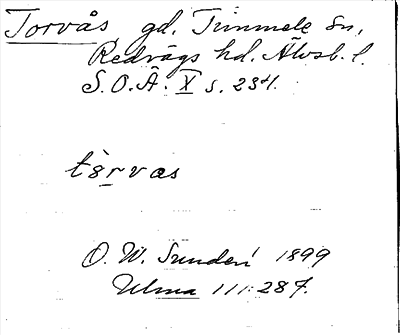 Torvås gd, Timmele sn,
Redvägs hd. Älvsb. l.
S.O.Ä. X s. 234.
tørvas
O. W. Sundén 1899
Ulma 111:287.